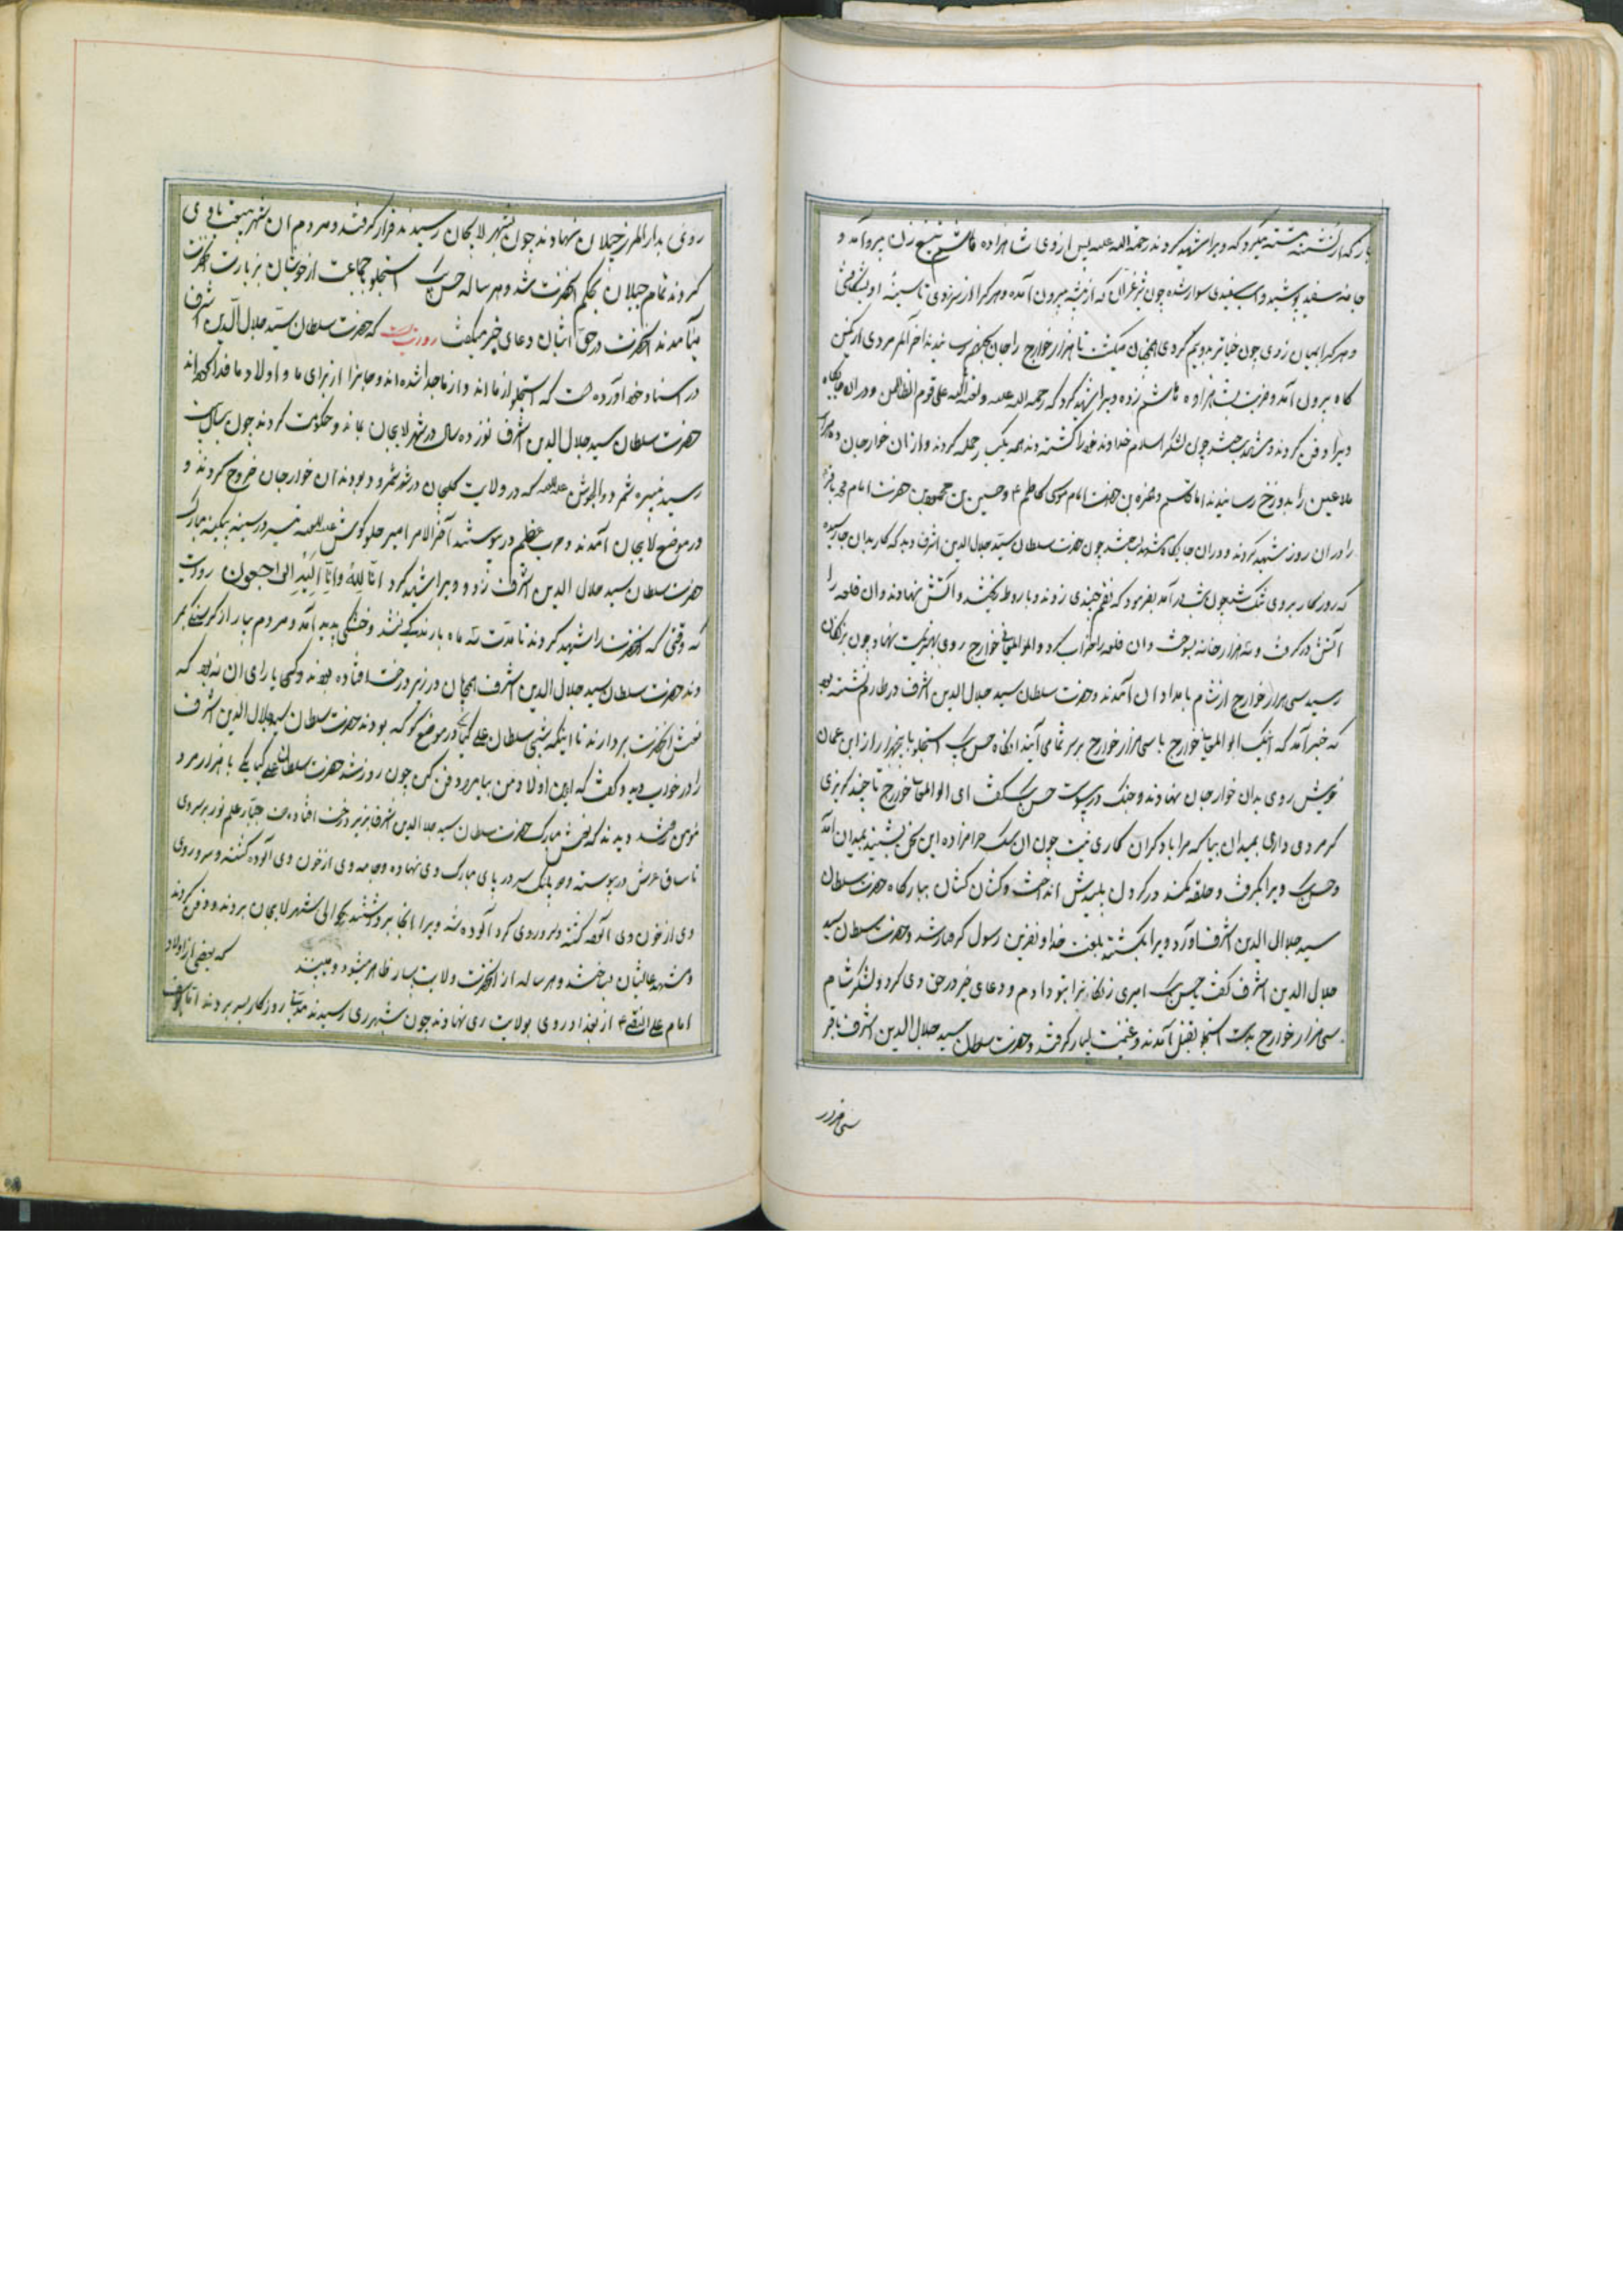 بار که از کشته پشته میکرد که ویرا شهید کردند رحمة الله علیه پس از وی شاهزاده قاسم تیغ زن بیرون آمد و
جامه سفید پوشید و اسب سفیدی سوار شده چون شیر غران که از بیشه بیرون آمده و هر کرا بر سر زدی تا سینه او بشکافتی
و هر کرا بر میان زدی چون خیار تر بدو نیم کردی همچنان میکشت تا هزار خوارج را جان بجهنم رسانید آخر الامر مردی از کمین
کاه بیرون آمد و ضربت بشاهزاده قاسم زده ویرا شهید کرد که رحمة الله علیه ولعنة الله علی قوم الظالمین و در آن جایکاه
ویرا دفن کردند و مشهد بخشد چون لشکر اسلام خداوند خود را کشته دیدند همه بیک بار حمله کردند و از آن خوارجان ده هزار
ملاعین را بدوزخ رسانیدند اما قاسم و حمزه بن حضرت امام موسی کاظم ع و حسین بن حضرت امام محمد باقر
را در آن روز شهید کردند و در آن جایکاه مشهد بخشد چون حضرت سلطان سید جلال الدین اشرف دید که کار بدان جا رسیده
که روزکار بروی تنک شد چون شب در آمد بفرمود که نقم چندی زدند و باروط ریختند و آتش نهادند و آن قلعه را
آتش در کرفت و سه هزار خانه بسوخت و آن قلعه را خراب کرد و ابو المعالی خوارج روی بهزیمت نهاد چون بزنکان
رسید سی هزار خوارج از شام بامداد آن آمدند و حضرت سلطان سید جلال الدین اشرف در طارم نشسته بود
که خبر آمد که اینک ابو المعالی خوارج با سی هزار خوارج بر سر شما می آیند آنکاه حسن بیک استجلو با پنجهزار از ابن عمان
خویش روی بدان خوارجان نهادند و جنک در پیوست حسن بیک کفت ای ابو المعالی خوارج تا چند کریزی
کر مردی داری بمیدان بیا که مرا با دکران کاری نیست چون آن سک حرامزاده این سخن بشنید بمیدان آمد
و حسن بیک ویرا بکرفت و حلقه کمند در کردن پلیدش انداخت و کشان کشان ببارکاه حضرت سلطان
سید جلال الدین اشرف آورد ویرا بکشتند بلعنت خدا و نفرین رسول کرفتار شد و حضرت سلطان سید
جلال الدین اشرف کفت یا حسن بیک امیری زنکان را بتو دادم و دعای خیر در حق وی کرد و لشکر شام
سی هزار خوارج بدست استجلو بقتل آمدند و غنیمت بسیار کرفتند و حضرت سلطان سید جلال الدین اشرف با قر
روی بدار المرز جیلان نهادند چون بشهر لاهجان رسیدند قرار کرفتند و مردم آن شهر بیعت با وی
کردند تمام جیلان بحکم آنحضرت شد و هر ساله حسن بیک استجلو جماعت از خویشان بزیارت آنحضرت
میآمدند آنحضرت در حق ایشان دعای خیر میکفت روایتست که حضرت سلطان سید جلال الدین اشرف
در اسناد خود آورده است که استجلو از ما اند و از ما جدا شده اند و جانرا از برای ما و اولاد ما فدا کرده اند
حضرت سلطان سید جلال الدین اشرف نوزده سال در شهر لاهجان بماند و حکومت کردند چون سال بیست
رسید نبیره شمر ذو الجوش علیه اللعنه که در ولایت کلیجان در شهر شمرود بودند آن خوارجان خروج کردند و
در موضع لاهجان آمدند و حرب عظیم در پیوستند آخر الامر امیر جلو کوش علیه اللعنه تیر در سینه بیکینه مبارک
حضرت سلطان سید جلال الدین اشرف زد و ویرا شهید کرد انا لله وانا الیه راجعون روایت
که وقتی که آنحضرت را شهید کردند تا مدت سه ماه بارندکی نشد و خشکی پدید آمد و مردم بسیار از کرسنکی بمر
دند حضرت سلطان سید جلال الدین اشرف همچنان در زیر درخت افتاده بودند و کسی یارای آن نبود که
نعش آنحضرت بردارند تا اینکه شبی سلطان علی کیا در موضع کوکه بودند حضرت سلطان سید جلال الدین اشرف
را در خواب دید و کفت که این اولاد من بیا مرا دفن کن چون روز شد حضرت سلطان علی کیا یکی با هزار مرد
مؤمن برفتند دیدند که نعش مبارک حضرت سلطان سید جلال الدین اشرف بزیر درخت افتاده است جبار علم نور بر سر وی
تا ساق عرش در پیوسته و پلنک سر در پای مبارک وی نهاده و جامه وی از خون وی آلوده کشته و سر و روی
وی از خون وی آلوده کشته و سر و روی کرد آلوده شد ویرا از آنجا برداشتند بحوالی شهر لاهجان بردند و دفن کردند
و مشهد عالیشان ساختند و هر ساله از آنحضرت ولایت بسیار ظاهر میشود و میبینند که بعضی از اولاد
امام علی النقی ع از بغداد روی بولایت ری نهادند چون بشهر ری رسیدند مدتی روزکار بسر بردند
سی هزار